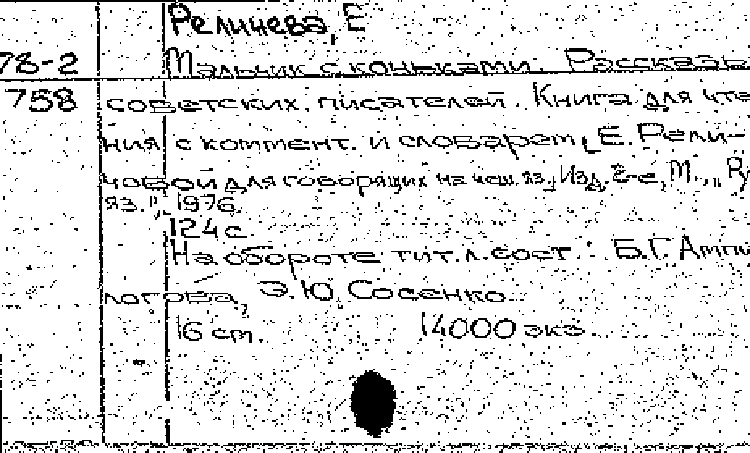 Реличева, Е
78-2 Мальчик с коньками. Рассказы
758 советских писателей. Книга для чте
ния с коммент. и словарем Е. Рели-
човой для говорящих на чеш. яз., Изд. 2-е, М., „Ру
яз.", 1976.
124 с.
На обороте тит. л. сост.: Б.Г. Ампи
логова, Э.Ю. Сосенко.
16 cm. 14000 экз.